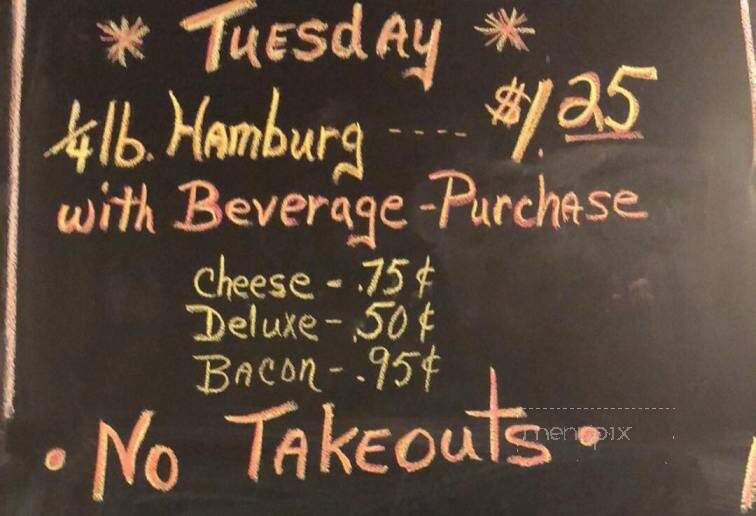 * Tuesday *
1/4 lb. Hamburg ---- $1.25
with Beverage-Purchase
Cheese - .75¢
Deluxe - .50¢
Bacon - .95¢
• No Takeouts •
menupix